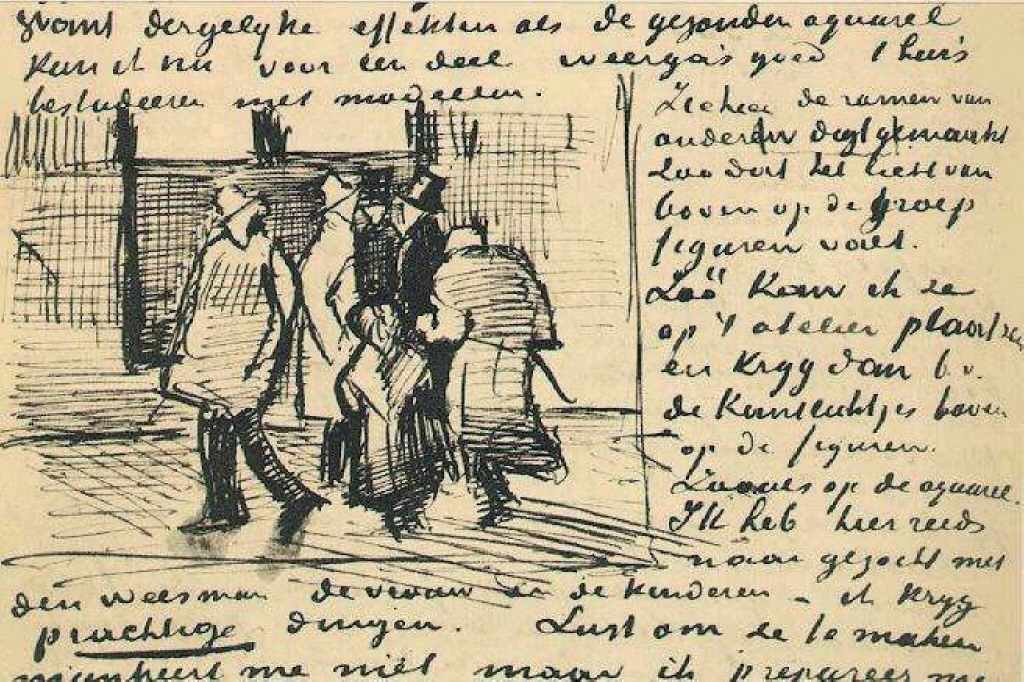 want dergelyke effekten als de gezonden aquarel
kan ik nu voor een deel weerga's goed thuis
bestudeeren met modellen.
Ziehier de ramen van
onderen digtgemaakt
Zoodat het licht van
boven op de groep
figuren valt.
Zoo kan ik ze
op 't atelier plaatsen
en kryg dan b.v.
de kantlichtjes boven
op de figuren.
Zooals op de aquarel.
Ik heb hier reeds
naar gezocht met
den weesman de vrouw en de kinderen – ik kryg
prachtige dingen. Lust om ze te maken
mankeert me niet maar ik prepareer me